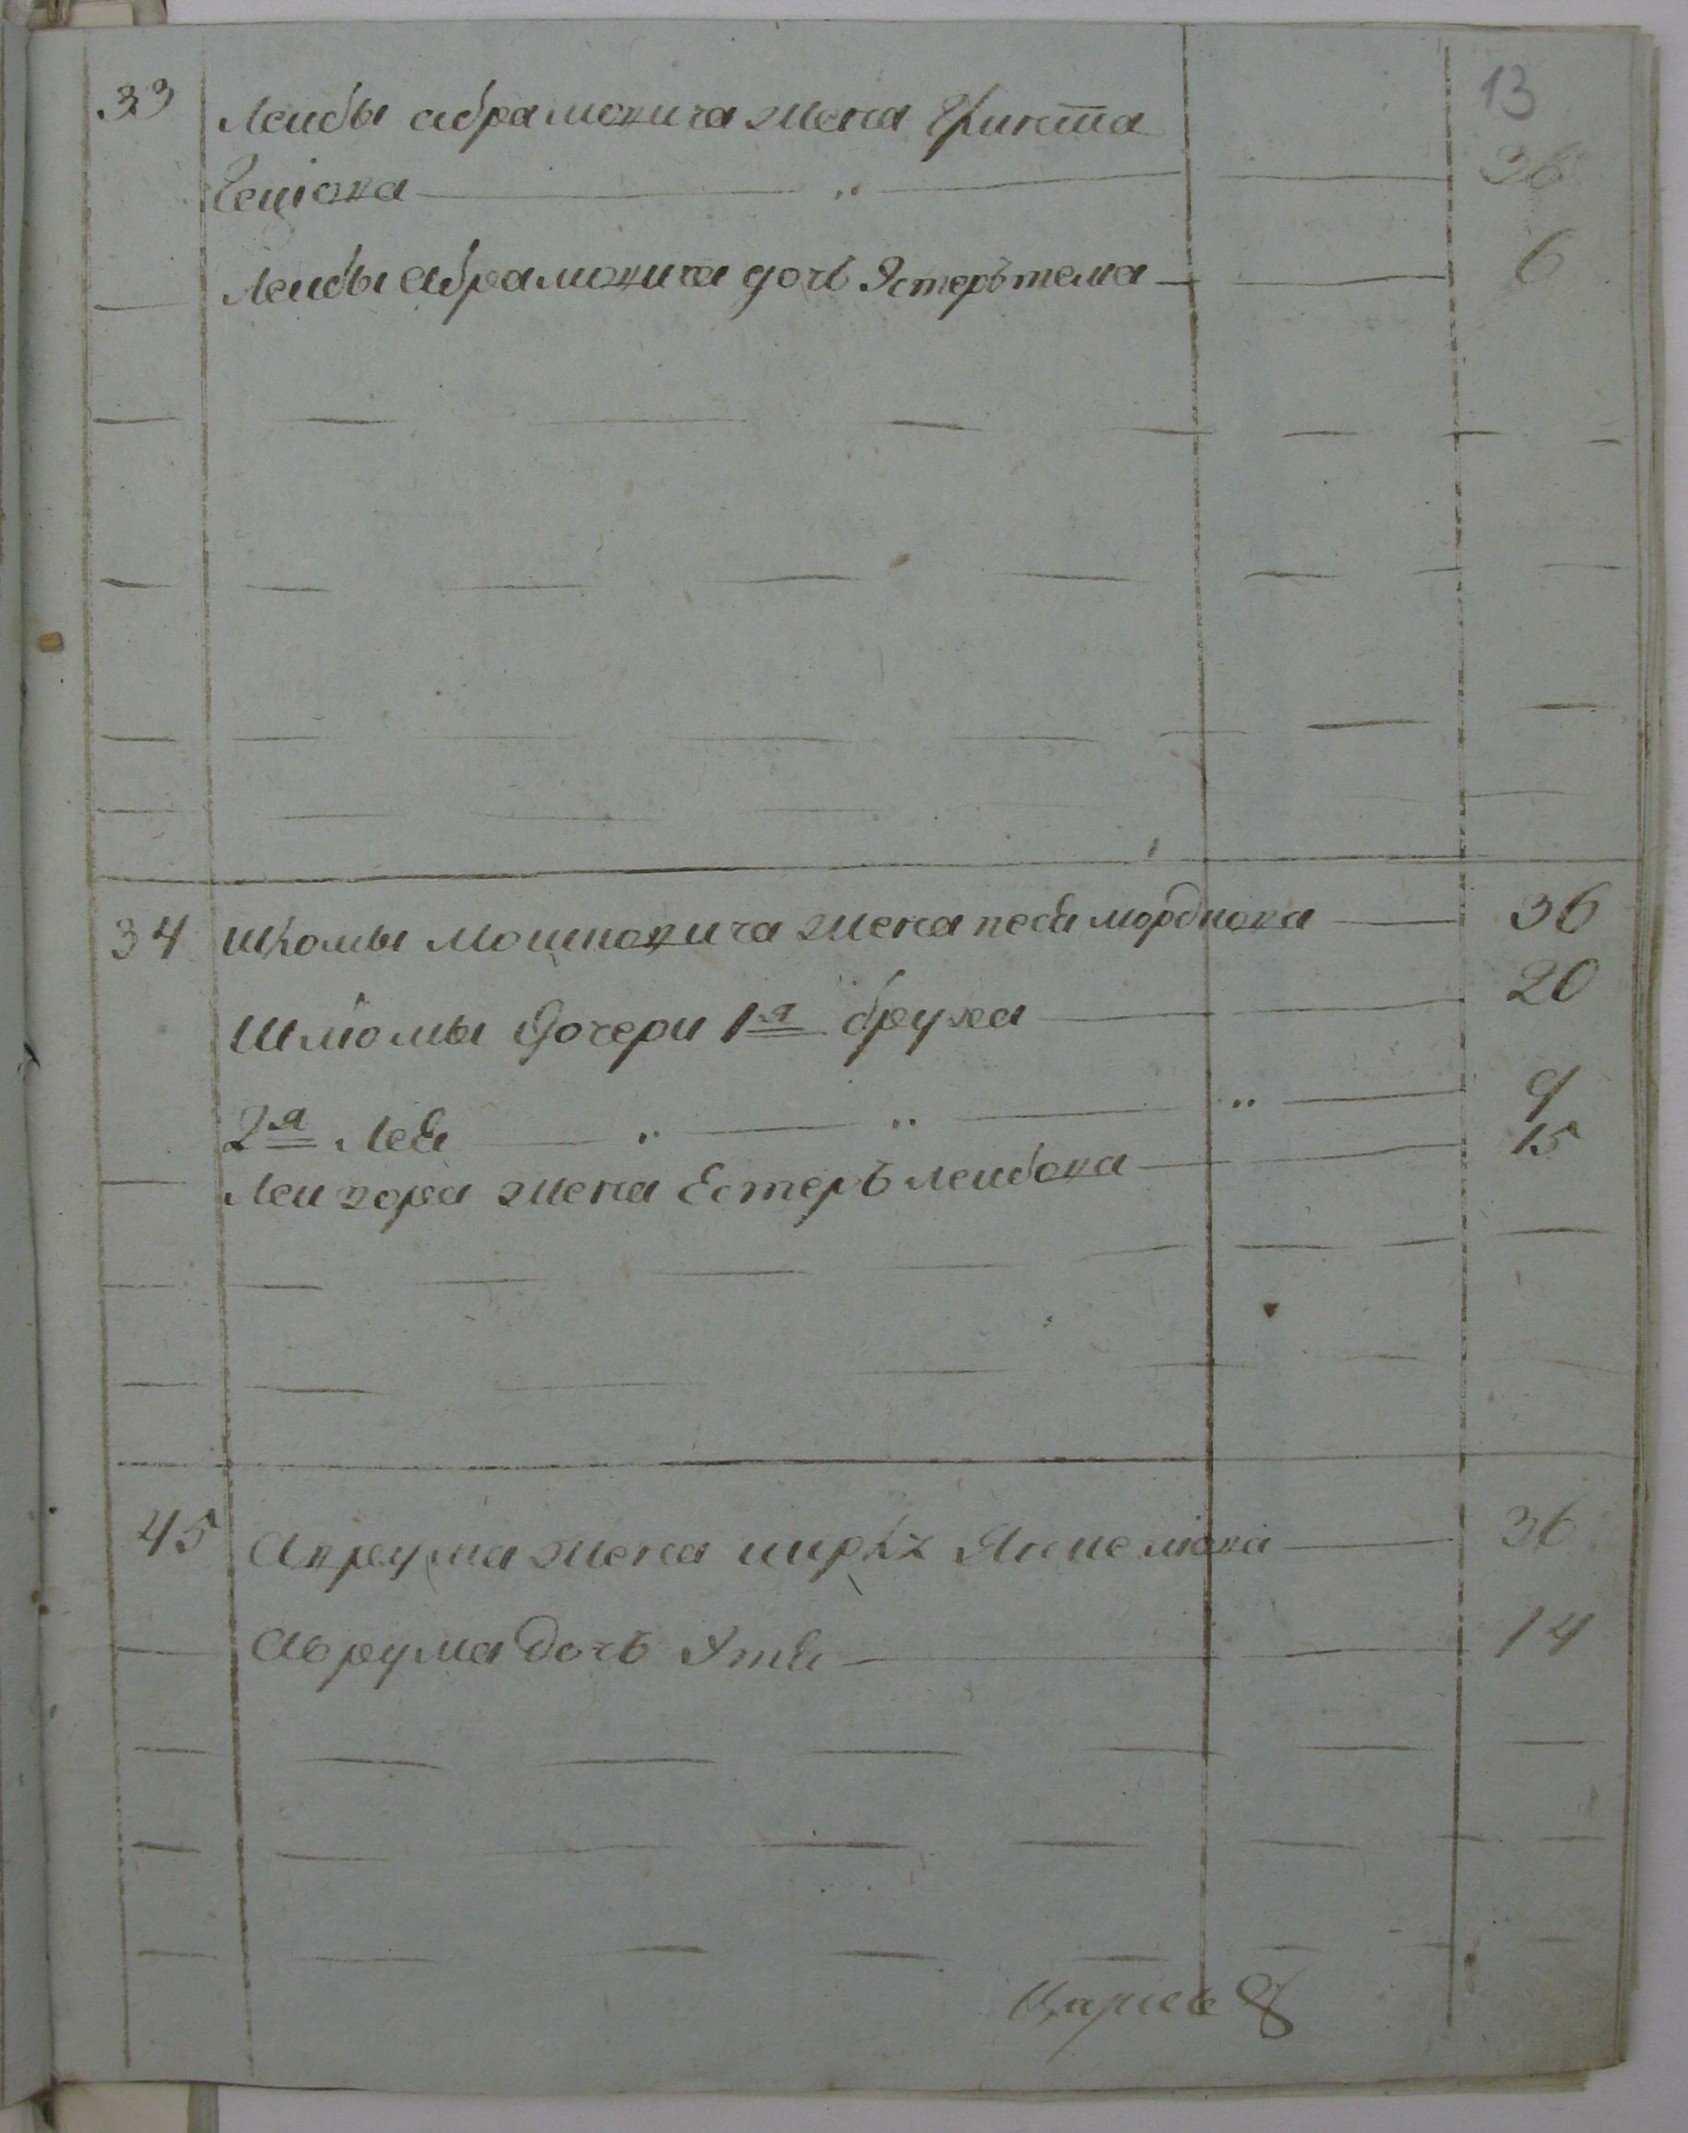 13
33 Лейбы абрамовича жена Фрита
Геціова 36
Лейбы абрамовича дочь Эстеръ тема 6
34 Шломы Мошковича жена песя мордкова 36
Шлiомы Дочери 1я бруха 20
2я Лея 9
Лейзора жена Естеръ лейбова 15
45 Авраума жена
36
Авраума Дочь Этля 14